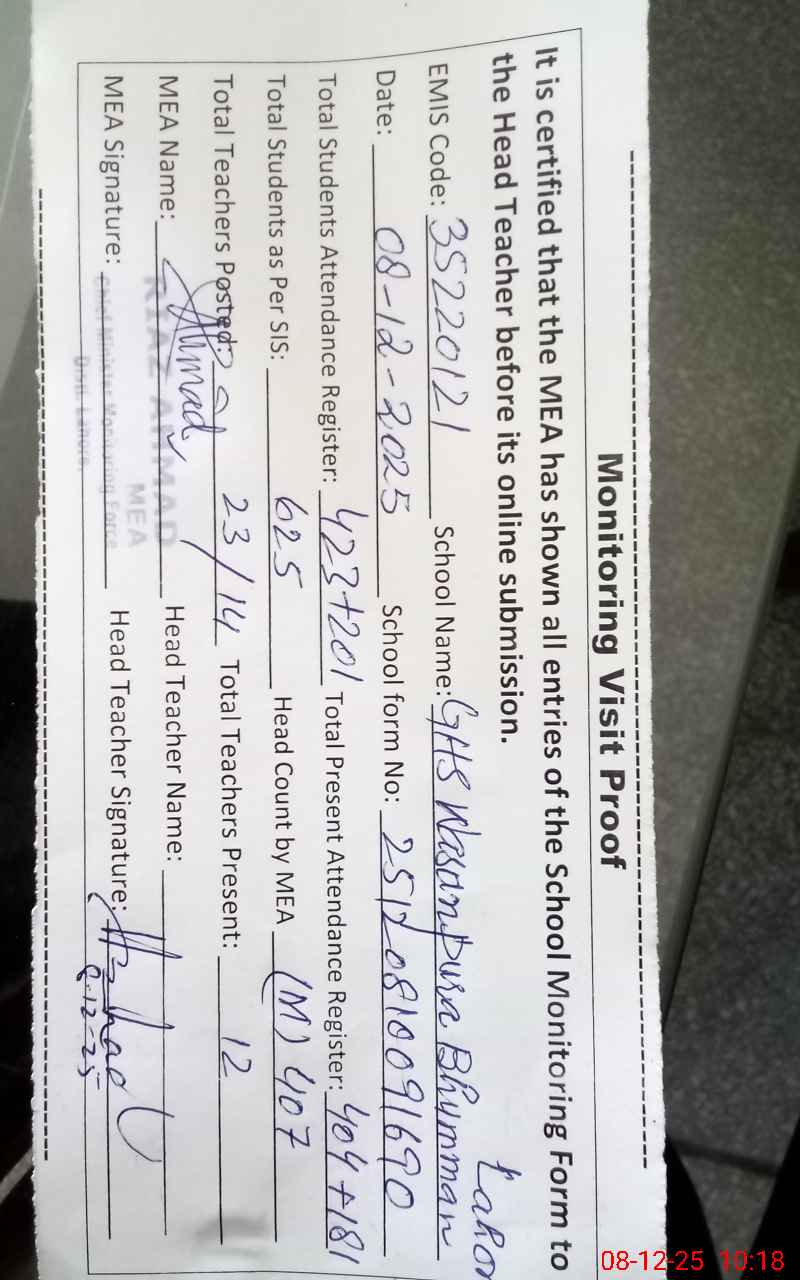 Monitoring Visit Proof
It is certified that the MEA has shown all entries of the School Monitoring Form to
the Head Teacher before its online submission.
Lahor
EMIS Code: 35220121 School Name: GHS Wasanpura Bhymman
Date: 08-12-2025 School form No: 25120810091690
Total Students Attendance Register: 423+201 Total Present Attendance Register: 404+181
Total Students as Per SIS: 625 Head Count by MEA (M) 407
Total Teachers Posted: 23/14 Total Teachers Present: 12
MEA Name: Ahmad Head Teacher Name:
RIAZ AHMAD
MEA
MEA Signature: Head Teacher Signature:
Chief Minister Monitoring Force
Distt. Lahore.
8-12-25
08-12-25 10:18